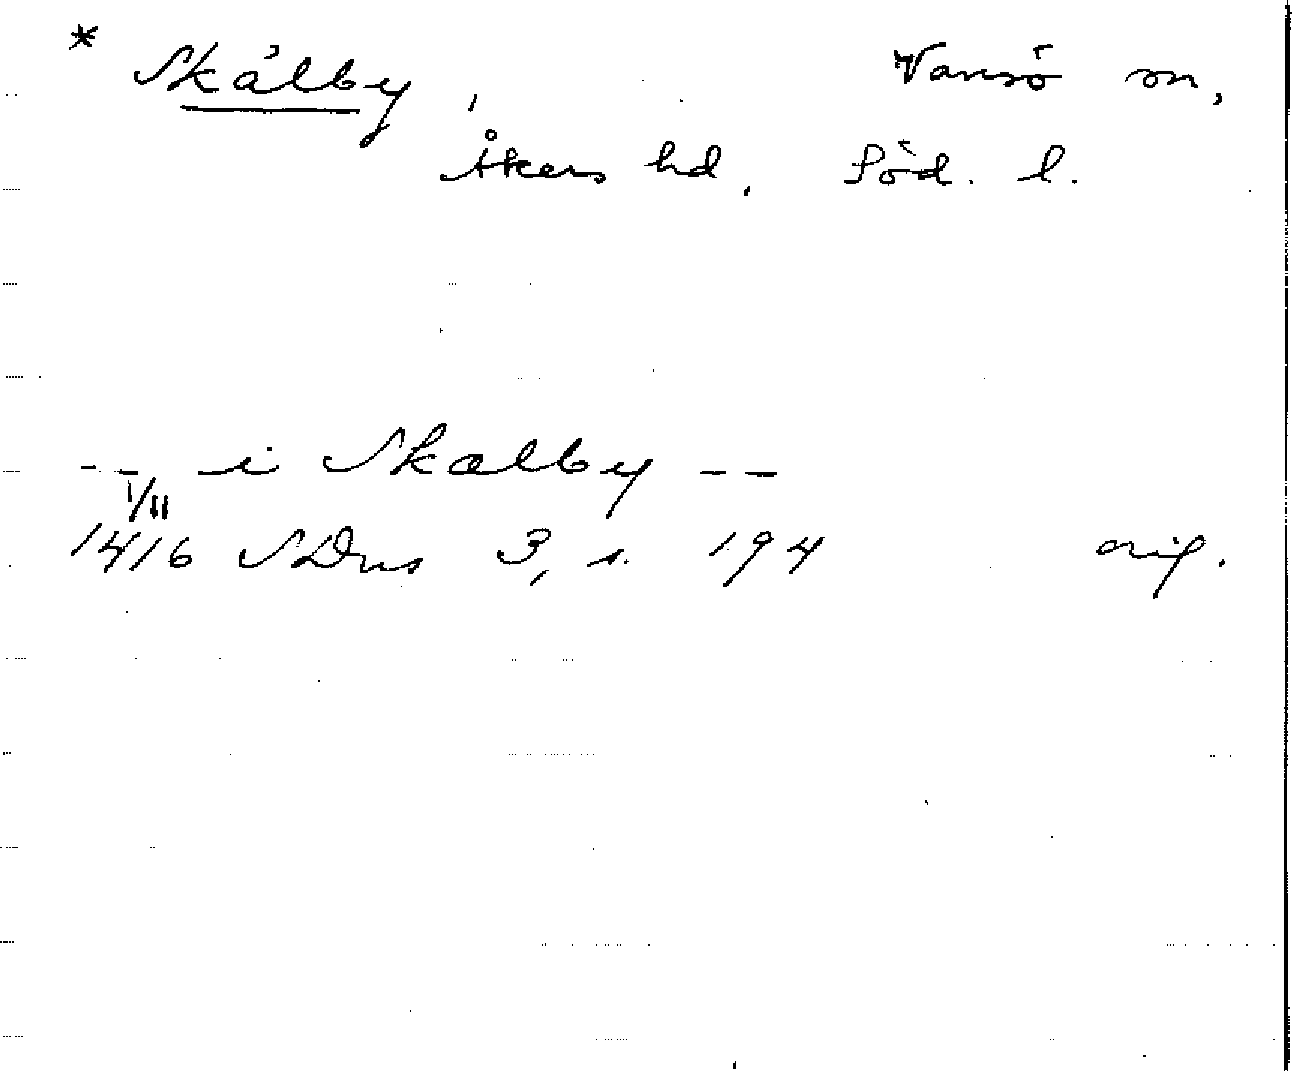 * Skålby, Vansö sn,
Åkers hd, Söd. l.
-- i Skalby --
1/11
1416 SDns 3, s. 194 orig.